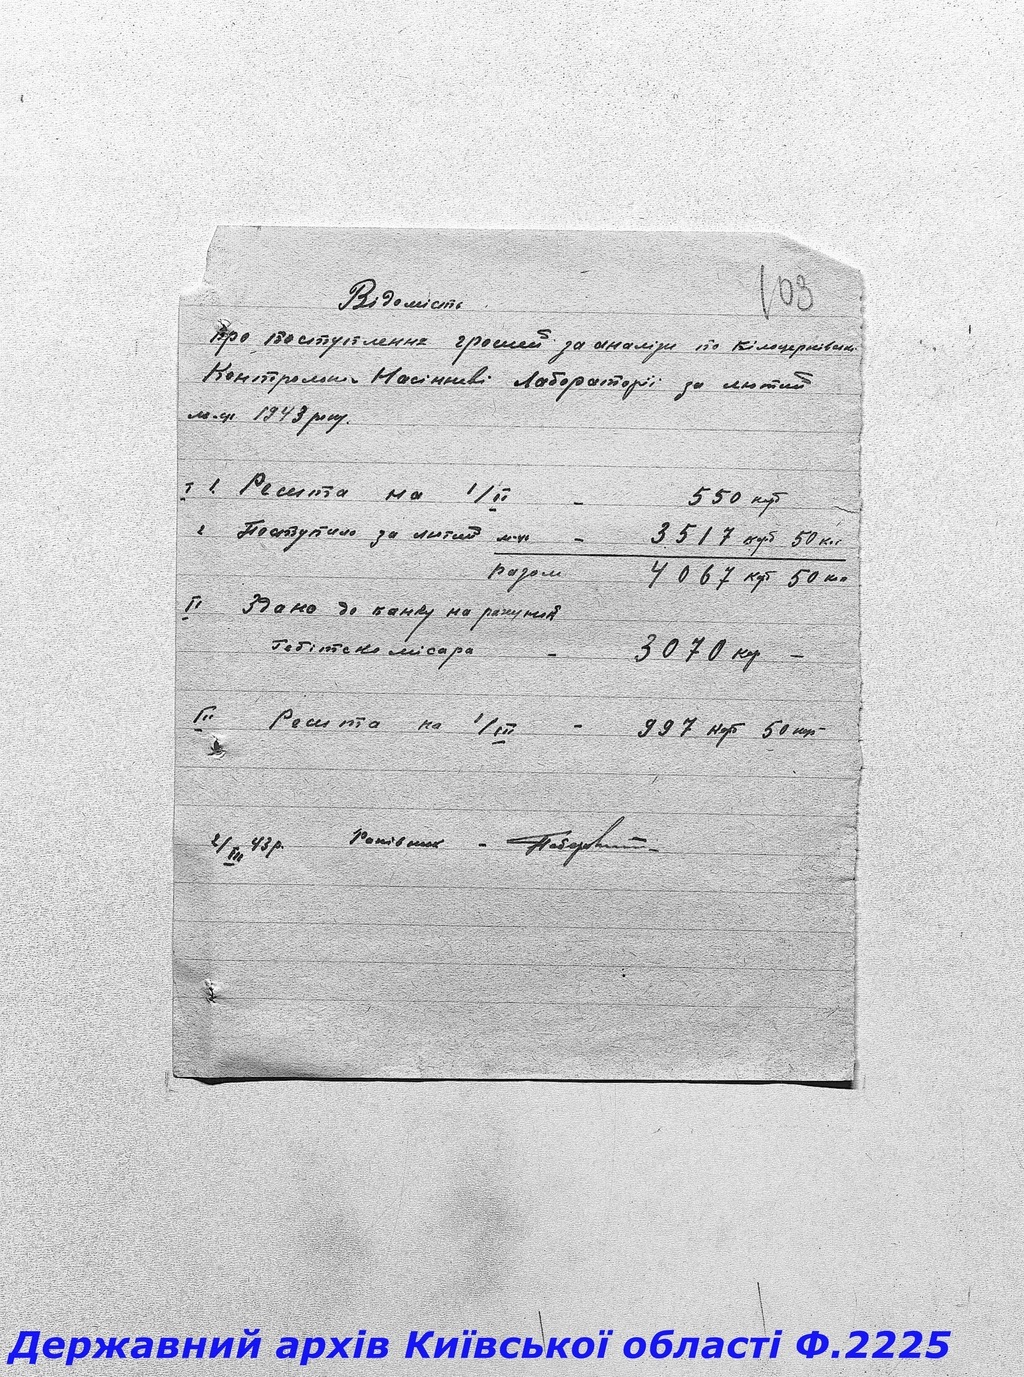 103
Відомість
про поступлення грошей за аналізи по Білоцерківськ.
Контрольні Насінневі Лабораторії за лютий
м-ць 1943 року.
I 1. Решта на 1/II - 550 крб
2 Поступило за лютий м-ць - 3517 крб 50 коп
разом 4067 крб 50 коп
II Здано до банку на рахунок
Гебітскомісара - 3070 крб –
III Решта на 1/III - 997 крб 50 коп
2/III 43 р. Рахівник -
Державний архів Київської області Ф.2225